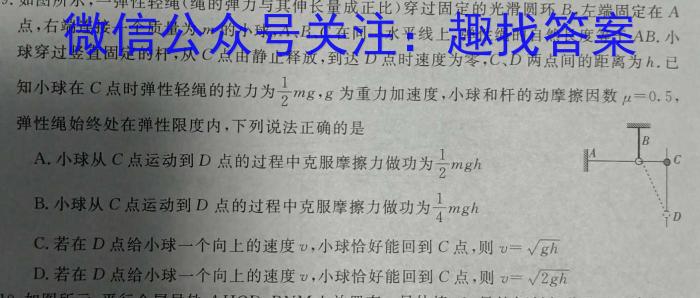 9.如图所示,一弹性轻绳(绳的弹力与其伸长量成正比)穿过固定的光滑圆环B,左端固定在A
点,右端 一个质量为m的小球,A、B、C在同一水平线上, AB.小
微信公众号关注:趣找答案
球穿过竖直固定的杆,从C点由静止释放,到达D点时速度为零,C、D两点间的距离为h.已
知小球在C点时弹性轻绳的拉力为1/2mg,g为重力加速度,小球和杆的动摩擦因数μ=0.5,
弹性绳始终处在弹性限度内,下列说法正确的是
A.小球从C点运动到D点的过程中克服摩擦力做功为1/2mgh
B.小球从C点运动到D点的过程中克服摩擦力做功为1/4mgh
C.若在D点给小球一个向上的速度v,小球恰好能回到C点,则v=√gh
D.若在D点给小球一个向上的速度v,小球恰好能回到C点,则v=√2gh
A
B
C
D